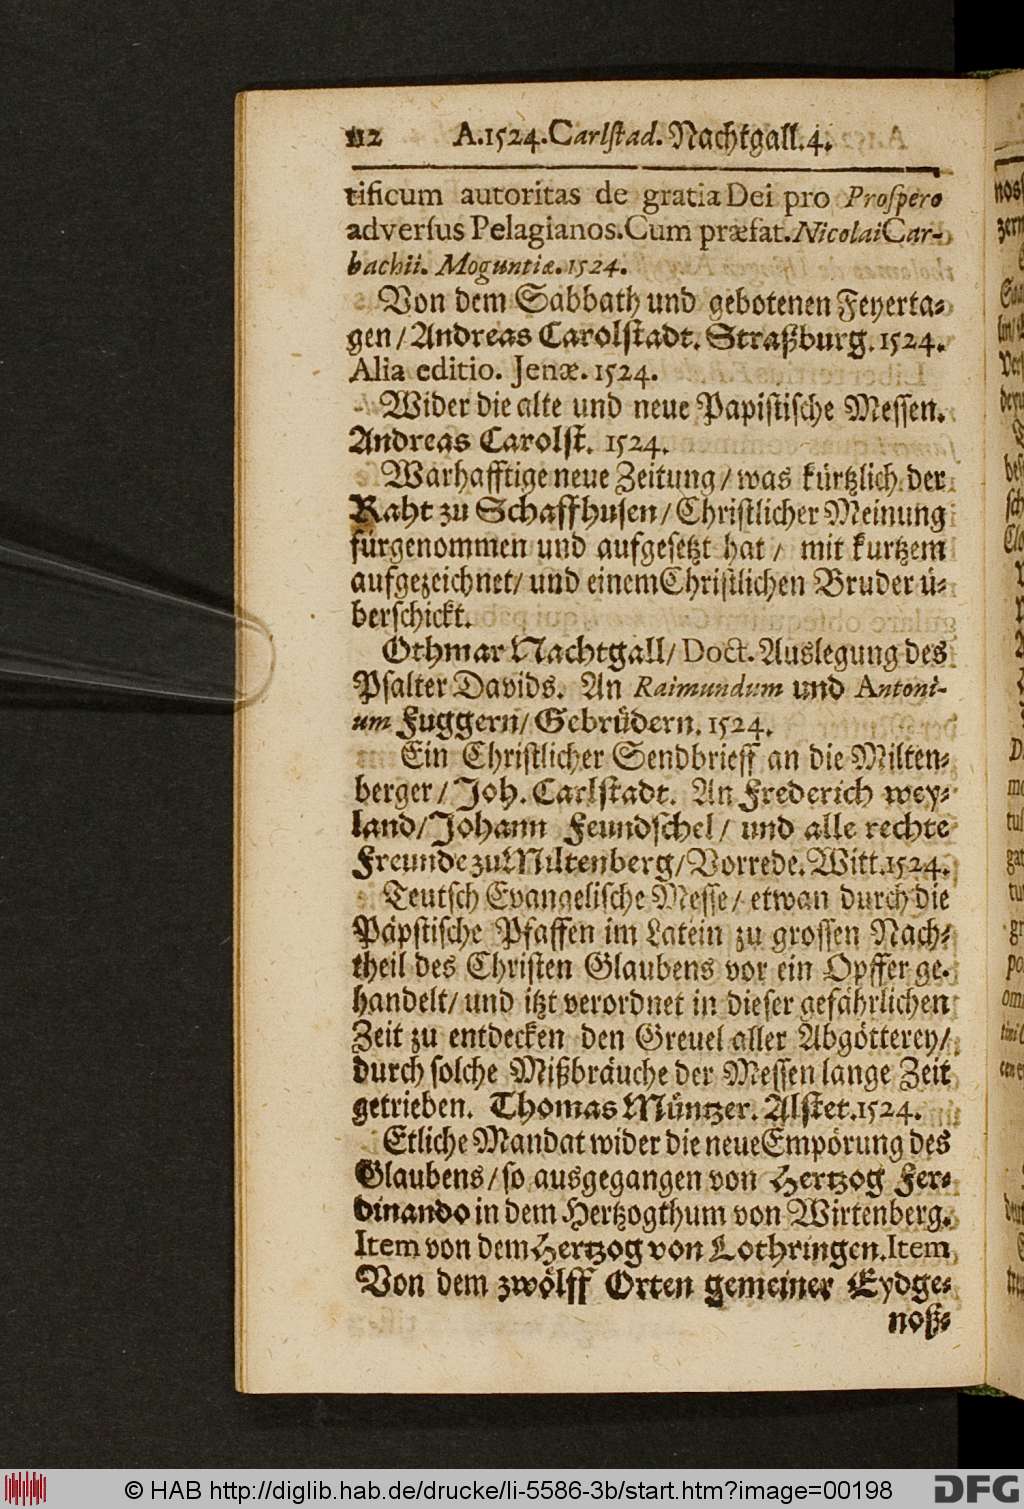 112 A.1524.Carlſtad. Nachtgall.4.
tificum autoritas de gratia Dei pro Proſpero
adverſus Pelagianos. Cum præfat. Nicolai Car-
bachii. Moguntiæ. 1524.
Von dem Sabbath und gebotenen Feyerta-
gen / Andreas Carolſtadt. Straßburg. 1524.
Alia editio. Jenæ. 1524.
Wider die alte und neue Papiſtiſche Meſſen.
Andreas Carolſt. 1524.
Warhafftige neue Zeitung / was kürtzlich der
Raht zu Schaffhuſen / Chriſtlicher Meinung
fürgenommen und aufgeſetzt hat / mit kurtzem
aufgezeichnet / und einem Chriſtlichen Bruder ü-
berſchickt.
Othmar Nachtgall / Doct. Auslegung des
Pſalter Davids. An Raimundum und Antoni-
um Fuggern / Gebrüdern. 1524.
Ein Chriſtlicher Sendbrieff an die Milten-
berger / Joh. Carlſtadt. An Frederich wey-
land / Johann Feundſchel / und alle rechte
Freunde zu Miltenberg / Vorrede. Witt. 1524.
Teutſch Evangeliſche Meſſe / etwan durch die
Päpſtiſche Pfaffen im Latein zu groſſen Nach-
theil des Chriſten Glaubens vor ein Opffer ge-
handelt / und itzt verordnet in dieſer gefährlichen
Zeit zu entdecken den Greuel aller Abgötterey /
durch ſolche Mißbräuche der Meſſen lange Zeit
getrieben. Thomas Müntzer. Alſtet. 1524.
Etliche Mandat wider die neue Empörung des
Glaubens / ſo ausgegangen von Hertzog Fer-
dinando in dem Hertzogthum von Wirtenberg.
Item von dem Hertzog von Lothringen. Item
Von dem zwölff Orten gemeiner Eydge-
noß-
© HAB http://diglib.hab.de/drucke/li-5586-3b/start.htm?image=00198 DFG